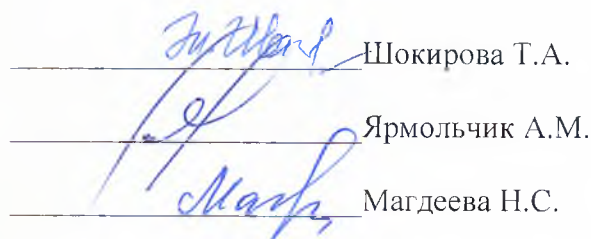 Шокирова Т.А.
Ярмольчик А.М.
Магдеева Н.С.